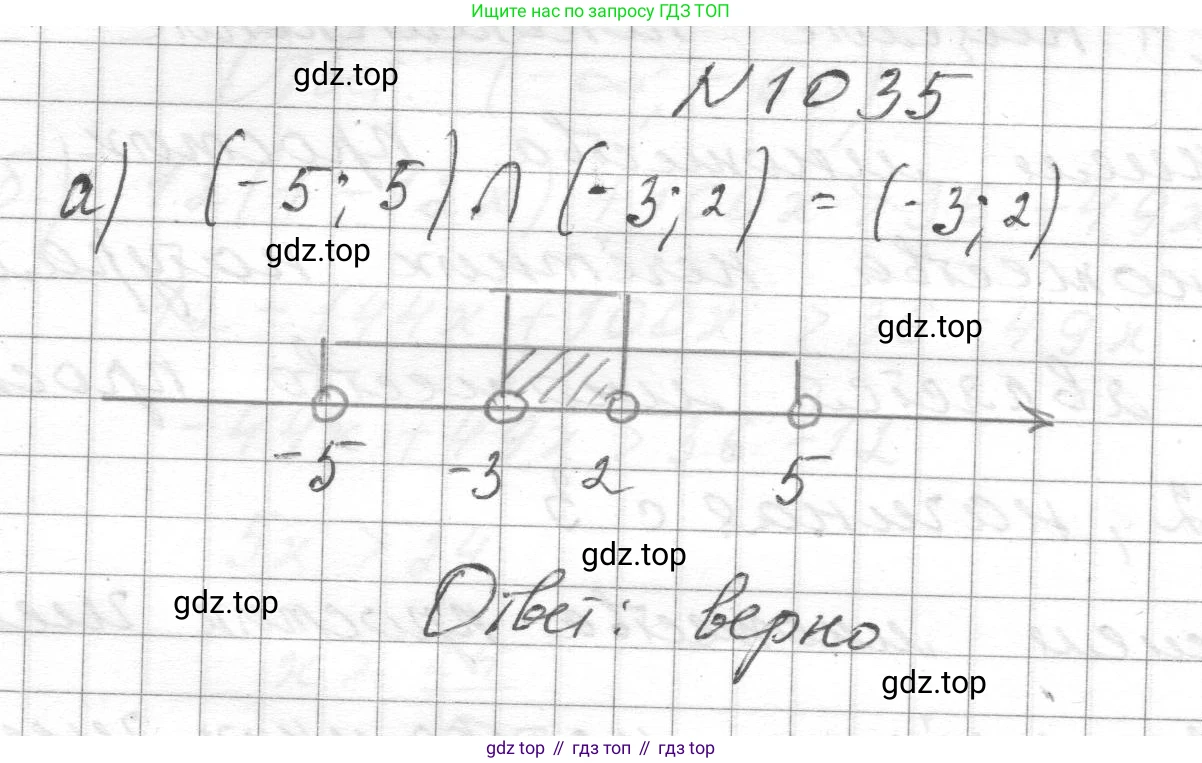 Ищите нас по запросу ГДЗ ТОП
gdz.top
N 1035
а) (-5; 5) ∩ (-3; 2) = (-3; 2)
gdz.top
gdz.top
-5 -3 2 5
gdz.top
gdz.top
Ответ: верно
gdz.top
gdz.top // гдз топ // гдз top